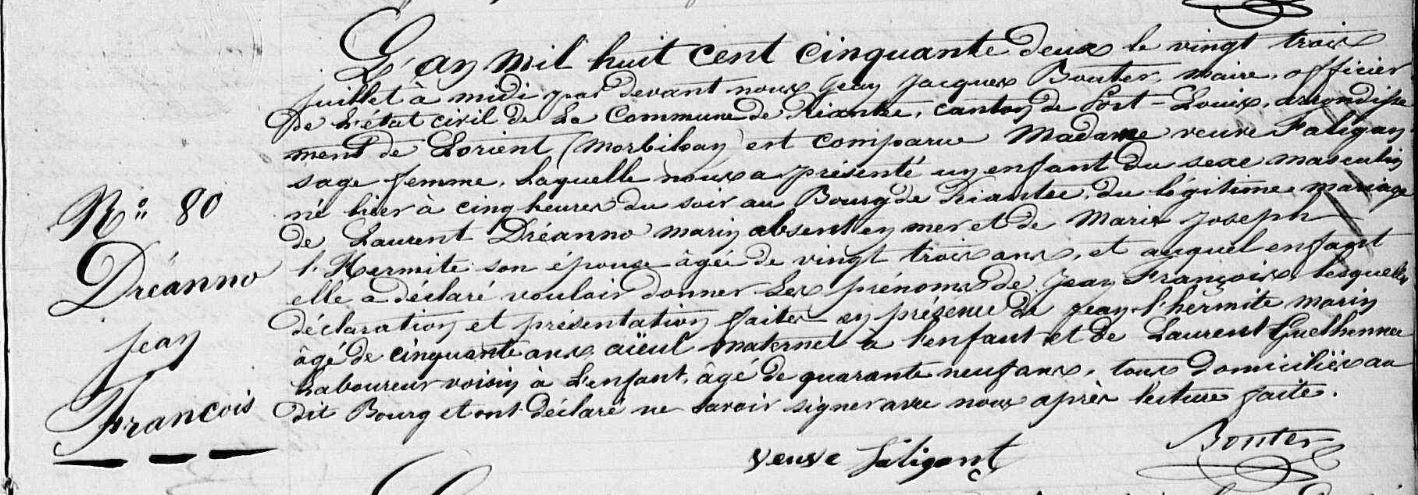 L'an mil huit cent cinquante deux le vingt trois
juillet à midi par devant nous Jean Jacques Bouter, maire, officier
de l'état civil de la Commune de Riantec, canton de Port-Louis, arrondisse
ment de Lorient (Morbihan) est comparue Madame veuve Faligan
sage femme, laquelle nous a présenté un enfant du sexe masculin
né hier à cinq heures du soir au Bourg de Riantec, du légitime mariage
de Laurent Dréanno marin absent en mer et de Marie Joseph
l'Hermite son épouse âgée de vingt trois ans, et auquel enfant
elle a déclaré vouloir donner les prénoms de Jean François, lesquelles
déclaration et présentation faites en présence de Jean l'hermite marin
âgé de cinquante ans aïeul maternel à l'enfant et de Laurent Guelhennec
Laboureur voisin à l'enfant, âgé de quarante neuf ans, tous domiciliés au
dit Bourg et ont déclaré ne savoir signer avec nous après lecture faite.
N° 80
Dréanno
Jean
François
veuve faligant
Bouter